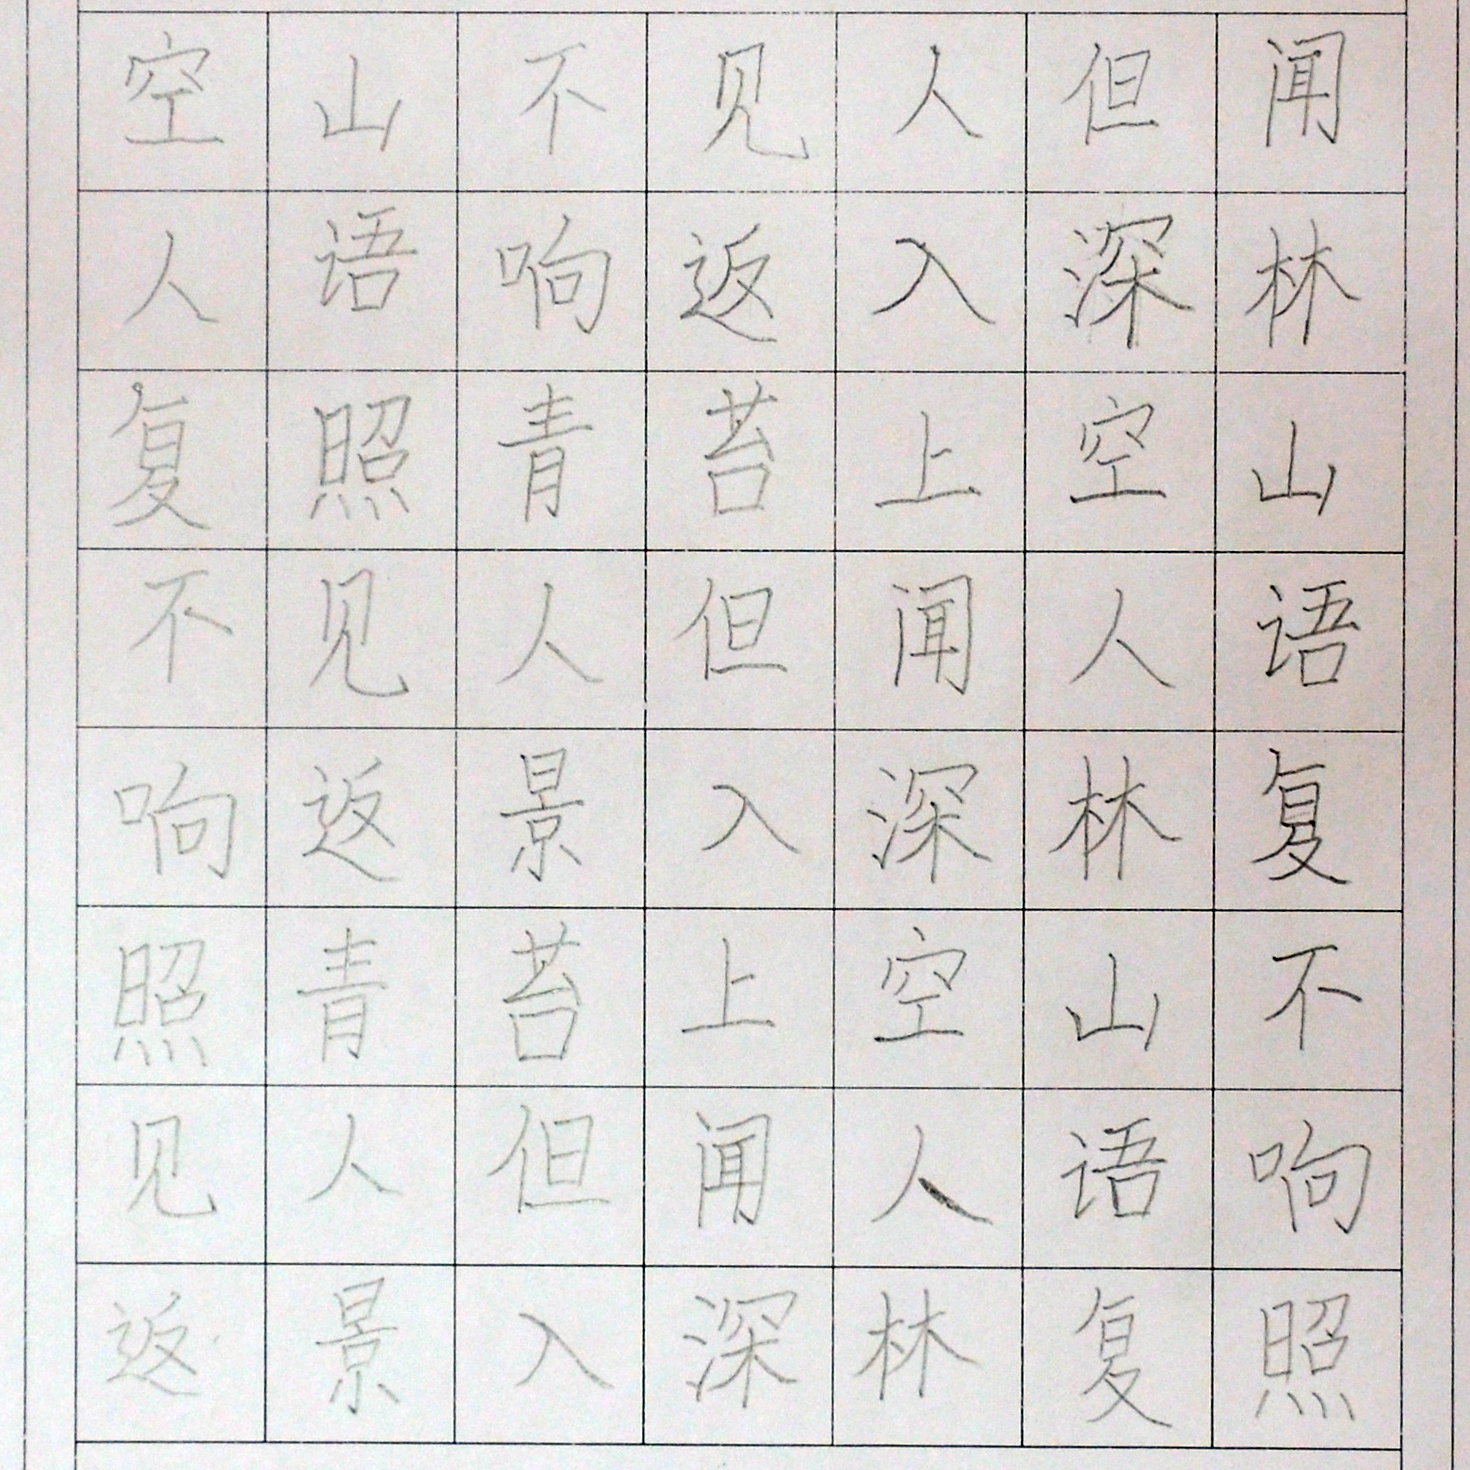 空山不见人但闻
人语响返入深林
复照青苔上空山
不见人但闻人语
响返景入深林复
照青苔上空山不
见人但闻人语响
返景入深林复照